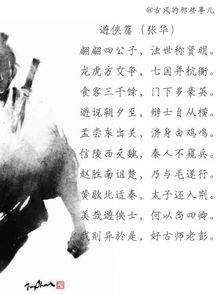 @古风的那些事儿
游侠篇（张华）
翩翩四公子，浊世称贤明。
龙虎方交争，七国并抗衡。
食客三千馀，门下多豪英。
游说朝夕至，辩士自从横。
孟尝东出关，济身由鸡鸣。
信陵西反魏，秦人不窥兵。
赵胜南诅楚，乃与毛遂行。
黄歇北适秦，太子还入荆。
美哉游侠士，何以尚四卿。
我则异于是，好古师老彭。